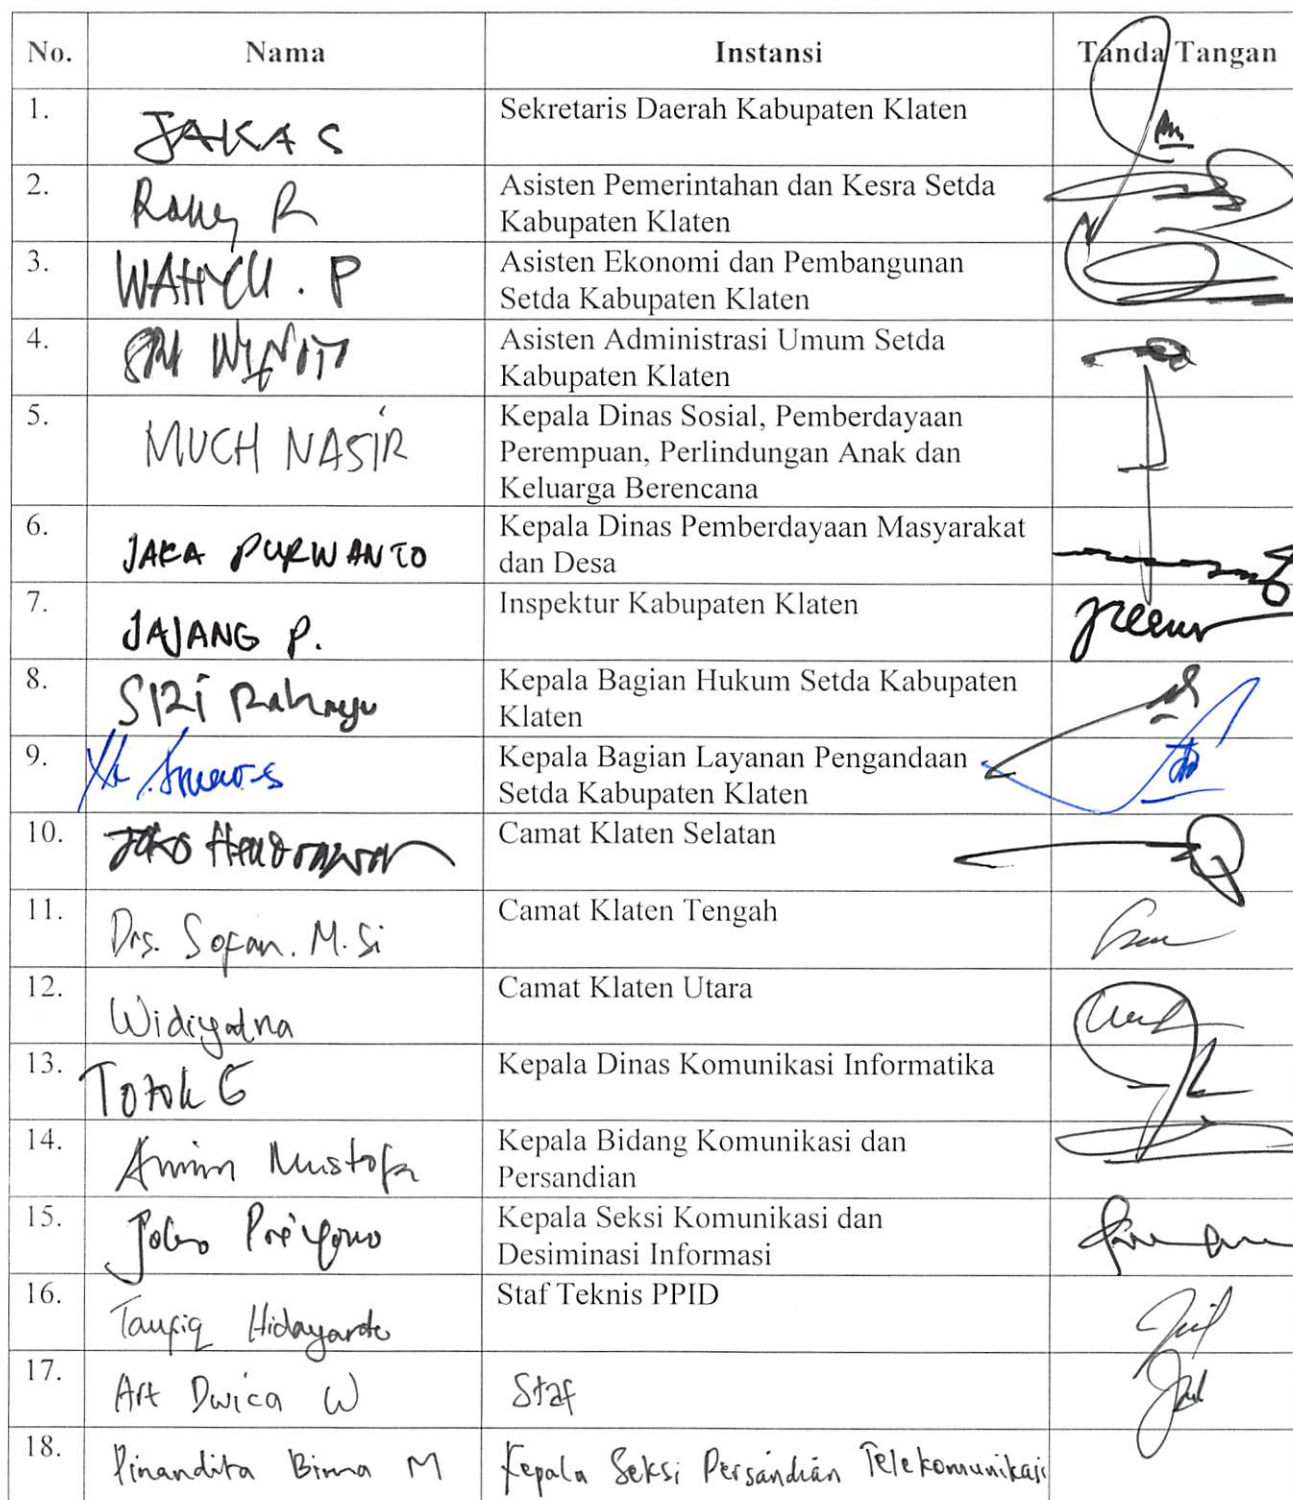 No. Nama Instansi Tanda Tangan
1. JAKA S Sekretaris Daerah Kabupaten Klaten
2. Ronny R Asisten Pemerintahan dan Kesra Setda
Kabupaten Klaten
3. WAHYU . P Asisten Ekonomi dan Pembangunan
Setda Kabupaten Klaten
4. SRI Asisten Administrasi Umum Setda
Kabupaten Klaten
5. MUCH NASIR Kepala Dinas Sosial, Pemberdayaan
Perempuan, Perlindungan Anak dan
Keluarga Berencana
6. JAKA PURWANTO Kepala Dinas Pemberdayaan Masyarakat
dan Desa
7. JAJANG P. Inspektur Kabupaten Klaten
8. SRi Rahayu Kepala Bagian Hukum Setda Kabupaten
Klaten
9. Kepala Bagian Layanan Pengandaan
Setda Kabupaten Klaten
10. Joko Hendrawan Camat Klaten Selatan
11. Drs. Sofan. M.Si Camat Klaten Tengah
12. Widiyatna Camat Klaten Utara
13. Totok G Kepala Dinas Komunikasi Informatika
14. Amin Mustofa Kepala Bidang Komunikasi dan
Persandian
15. Joko Priyono Kepala Seksi Komunikasi dan
Desiminasi Informasi
16. Taufiq Hidayanto Staf Teknis PPID
17. Art Dwica W Staf
18. Pinandita Bima M Kepala Seksi Persandian Telekomunikasi